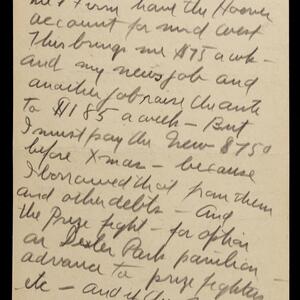 me & Firm have the Hoover
account for mid west
This brings me $75 a wk -
and my news job and
another job raise the ante
to $185 a week - But
I must pay the New $750
before Xmas - because
I borrowed that from them
and other debts - and
the Prize fight - for option
on Dexter Park pavilion -
advance to prize fighters
etc - and if the